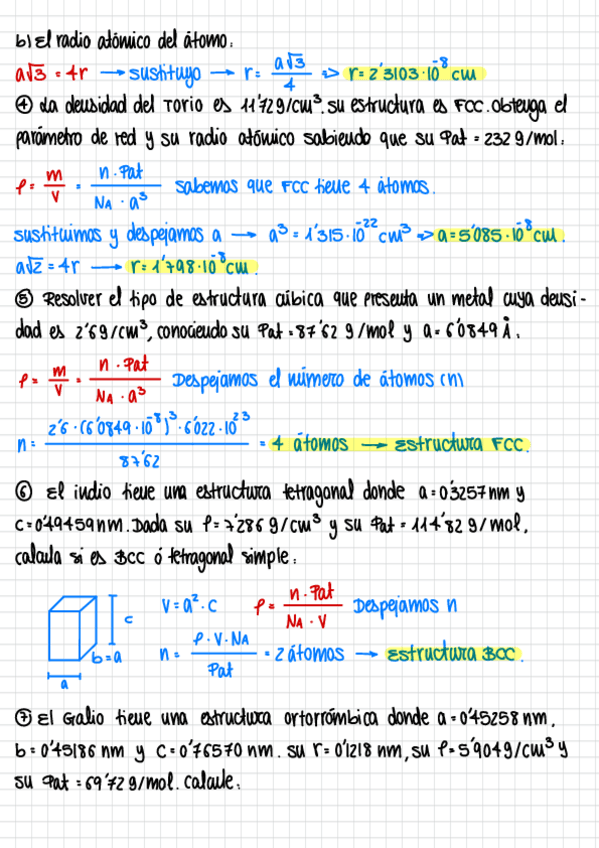 b) El radio atómico del átomo:
a√3 = 4r → sustituyo → r = a√3 / 4 => r = 2'3103·10^-8 cm
④ La densidad del Torio es 11'72 g/cm³, su estructura es FCC. Obtenga el
parámetro de red y su radio atómico sabiendo que su Pat = 232 g/mol:
ρ = m/V = n·Pat / NA·a³ Sabemos que FCC tiene 4 átomos.
sustituimos y despejamos a → a³ = 1'315·10^-22 cm³ => a = 5'085·10^-8 cm.
a√2 = 4r → r = 1'798·10^-8 cm.
⑤ Resolver el tipo de estructura cúbica que presenta un metal cuya densi-
dad es 2'6 g/cm³, conociendo su Pat = 87'62 g/mol y a = 6'0849 Å:
ρ = m/V = n·Pat / NA·a³ Despejamos el número de átomos (n)
n = 2'6·(6'0849·10^-8)³·6'022·10^23 / 87'62 = 4 átomos → Estructura FCC.
⑥ El indio tiene una estructura tetragonal donde a = 0'3257 nm y
c = 0'49459 nm. Dada su ρ = 7'286 g/cm³ y su Pat = 114'82 g/mol,
calcula si es BCC ó tetragonal simple:
V = a²·c ρ = n·Pat / NA·V Despejamos n
c
b = a
a
n = ρ·V·NA / Pat = 2 átomos → Estructura BCC.
⑦ El Galio tiene una estructura ortorrómbica donde a = 0'45258 nm,
b = 0'45186 nm y c = 0'76570 nm. su r = 0'1218 nm, su ρ = 5'904 g/cm³ y
su Pat = 69'72 g/mol. Calcule: